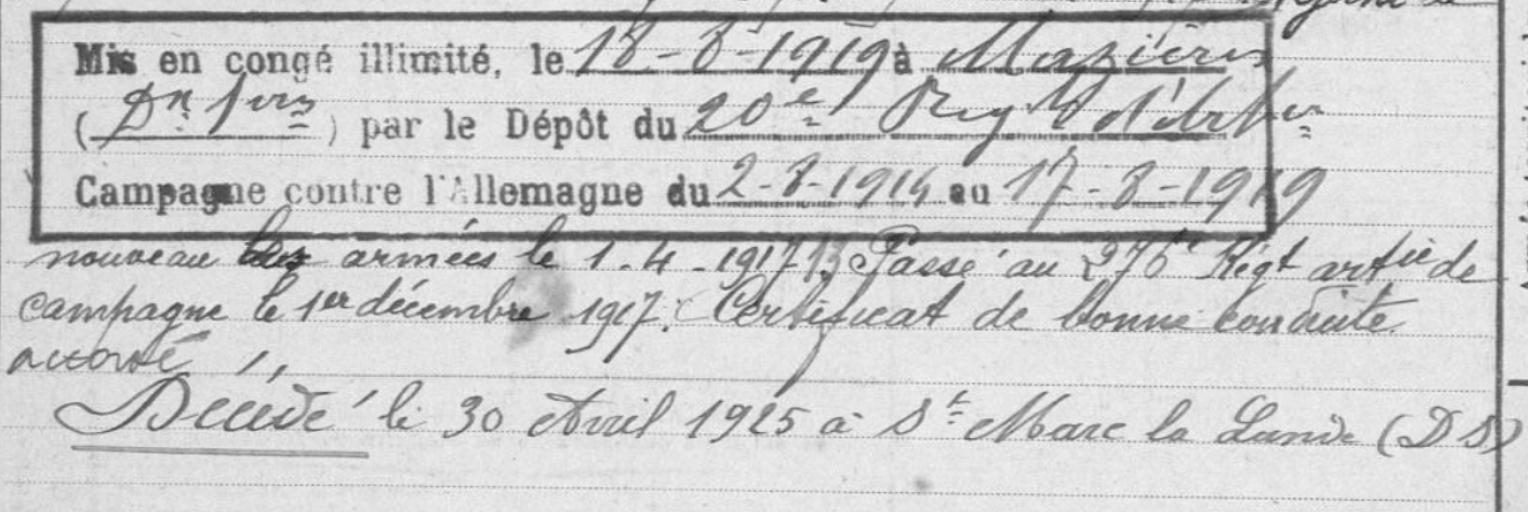 rejoint le
Mis en congé illimité, le 18-8-1919 à Mazières
(Dx Svres) par le Dépôt du 20e Regt d'Artie
Campagne contre l'Allemagne du 2-8-1914 au 17-8-1919
nouveau les armées le 1.4.1917 Passé au 276e Régt artie de
campagne le 1er décembre 1917. Certificat de bonne conduite
accordé
Décédé le 30 Avril 1925 à St Marc la Lande (D S)